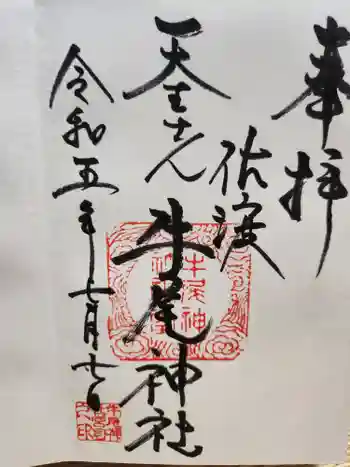 奉拝
佐渡
天王さん
牛尾神社
令和五年十月七日
牛尾神社